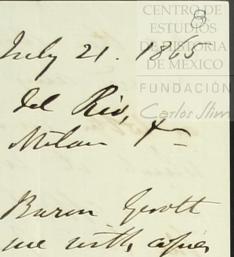 CENTRO DE
ESTUDIOS
DE HISTORIA
DE MEXICO
FUNDACIÓN
Carlos Slim
8
July 21. 1865
del Rio,
Milan &
Baron Gerolt
me with copies